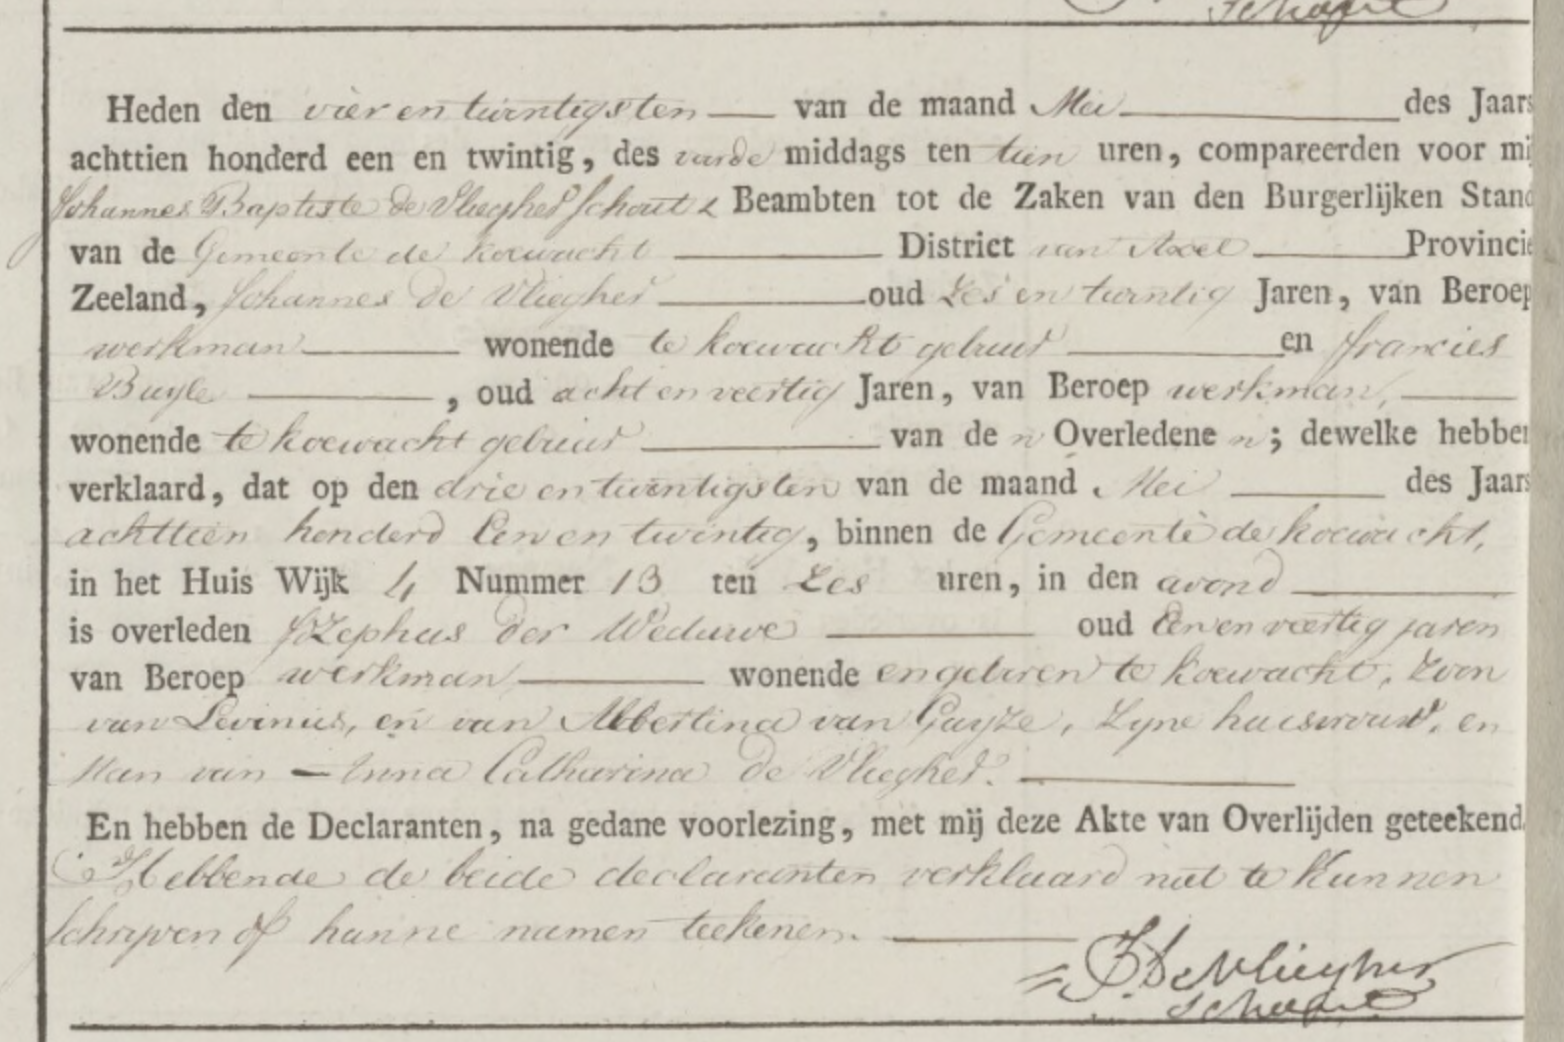 Schout
Heden den vier en twintigsten van de maand Mei des Jaars
achttien honderd een en twintig, des voorde middags ten tien uren, compareerden voor mij
Johannes Baptiste de Vliegher Schout & Beambten tot de Zaken van den Burgerlijken Stand
van de Gemeente de koewacht District van Axel Provincie
Zeeland, Johannes de Vliegher oud Zes en twintig Jaren, van Beroep
werkman wonende te koewacht gebuur en francies
Buyle, oud acht en veertig Jaren, van Beroep werkman,
wonende te koewacht gebuur van de n Overledene n; dewelke hebben
verklaard, dat op den drie en twintigsten van de maand Mei des Jaars
achttien honderd Een en twintig, binnen de Gemeente de koewacht,
in het Huis Wijk 4 Nummer 13 ten Zes uren, in den avond
is overleden Jozephus der Weduwe oud Een en veertig jaren
van Beroep werkman wonende en geboren te koewacht, Zoon
van Levinus, en van Albertina van Guyze, Zyne huisvrouw, en
Man van Anna Catharina de Vliegher.
En hebben de Declaranten, na gedane voorlezing, met mij deze Akte van Overlijden geteekend.
Hebbende de beide declaranten verklaard niet te kunnen
schryven of hunne namen teekenen.
J.B. de Vliegher
Schout